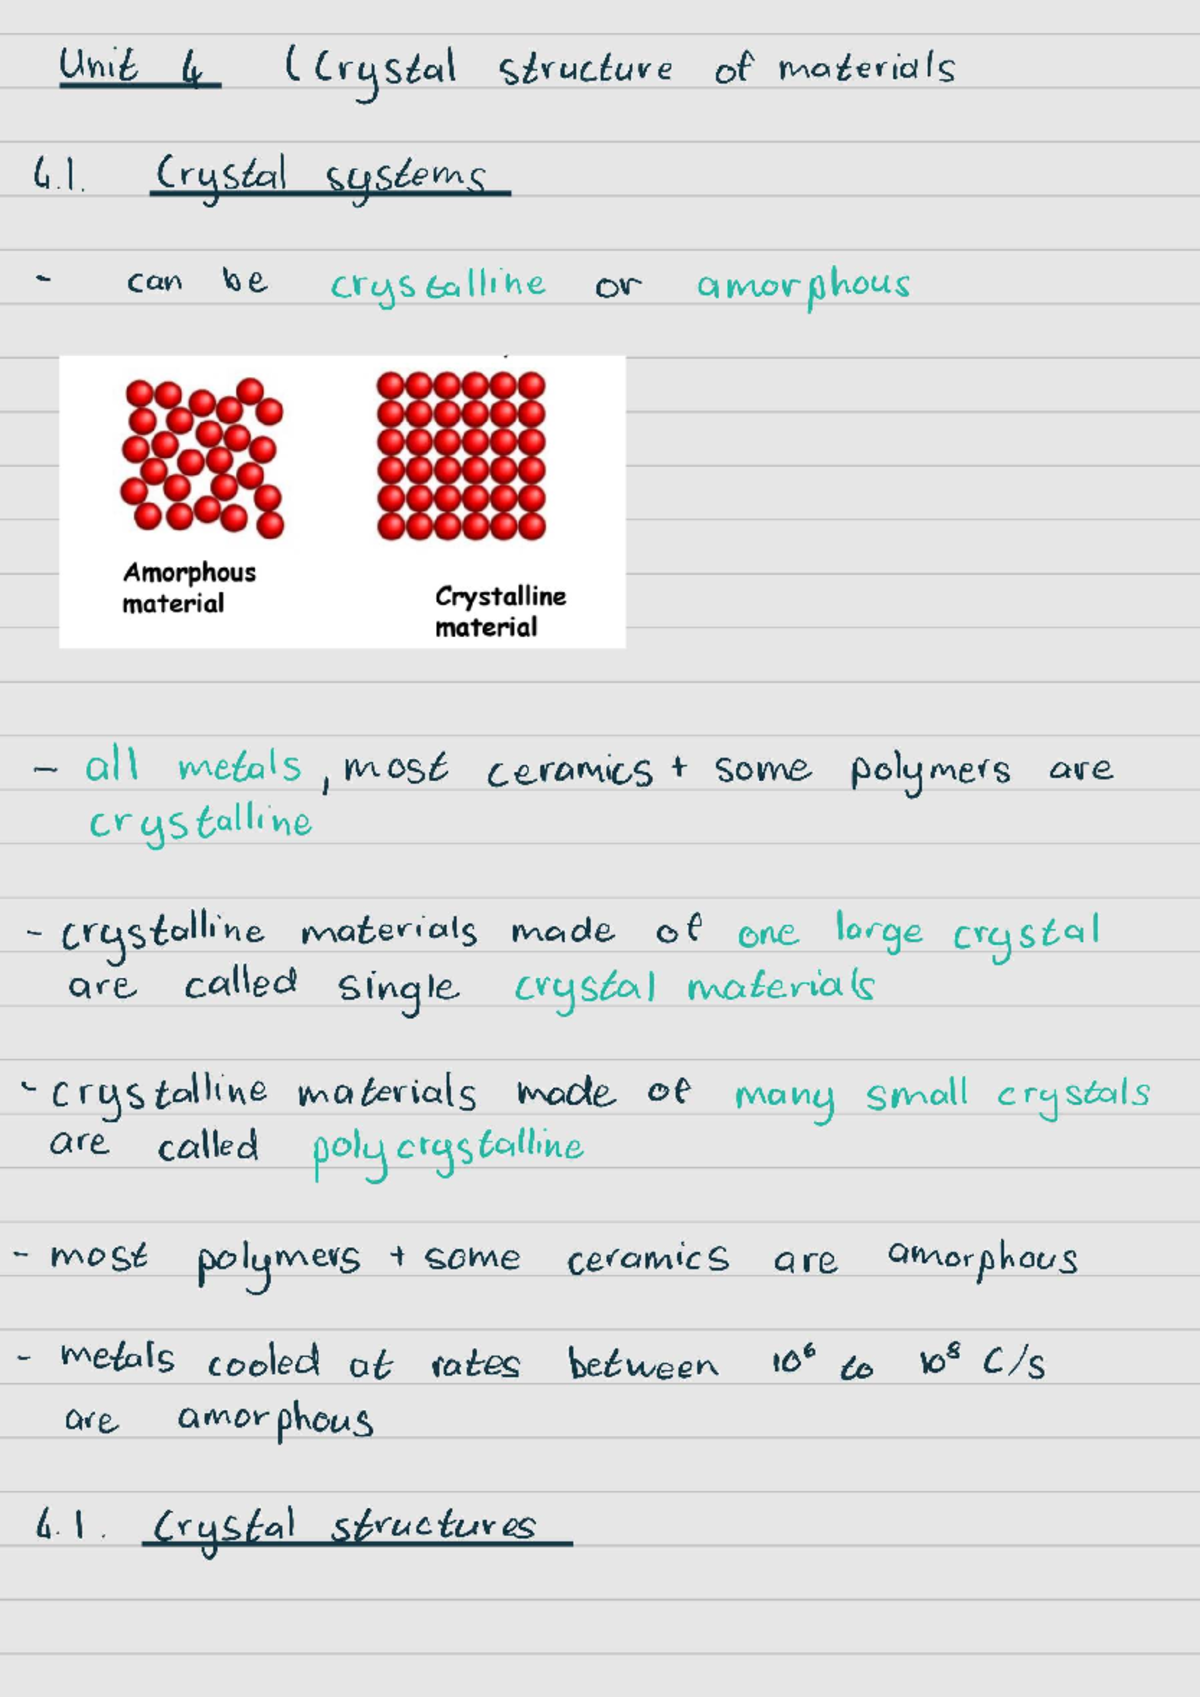 Unit 4 (Crystal structure of materials
4.1. Crystal systems
- can be crystalline or amorphous
Amorphous
material
Crystalline
material
- all metals, most ceramics + some polymers are
crystalline
- crystalline materials made of one large crystal
are called single crystal materials
- crystalline materials made of many small crystals
are called polycrystalline
- most polymers + some ceramics are amorphous
- metals cooled at rates between 10⁶ to 10⁸ C/s
are amorphous
4.1. Crystal structures